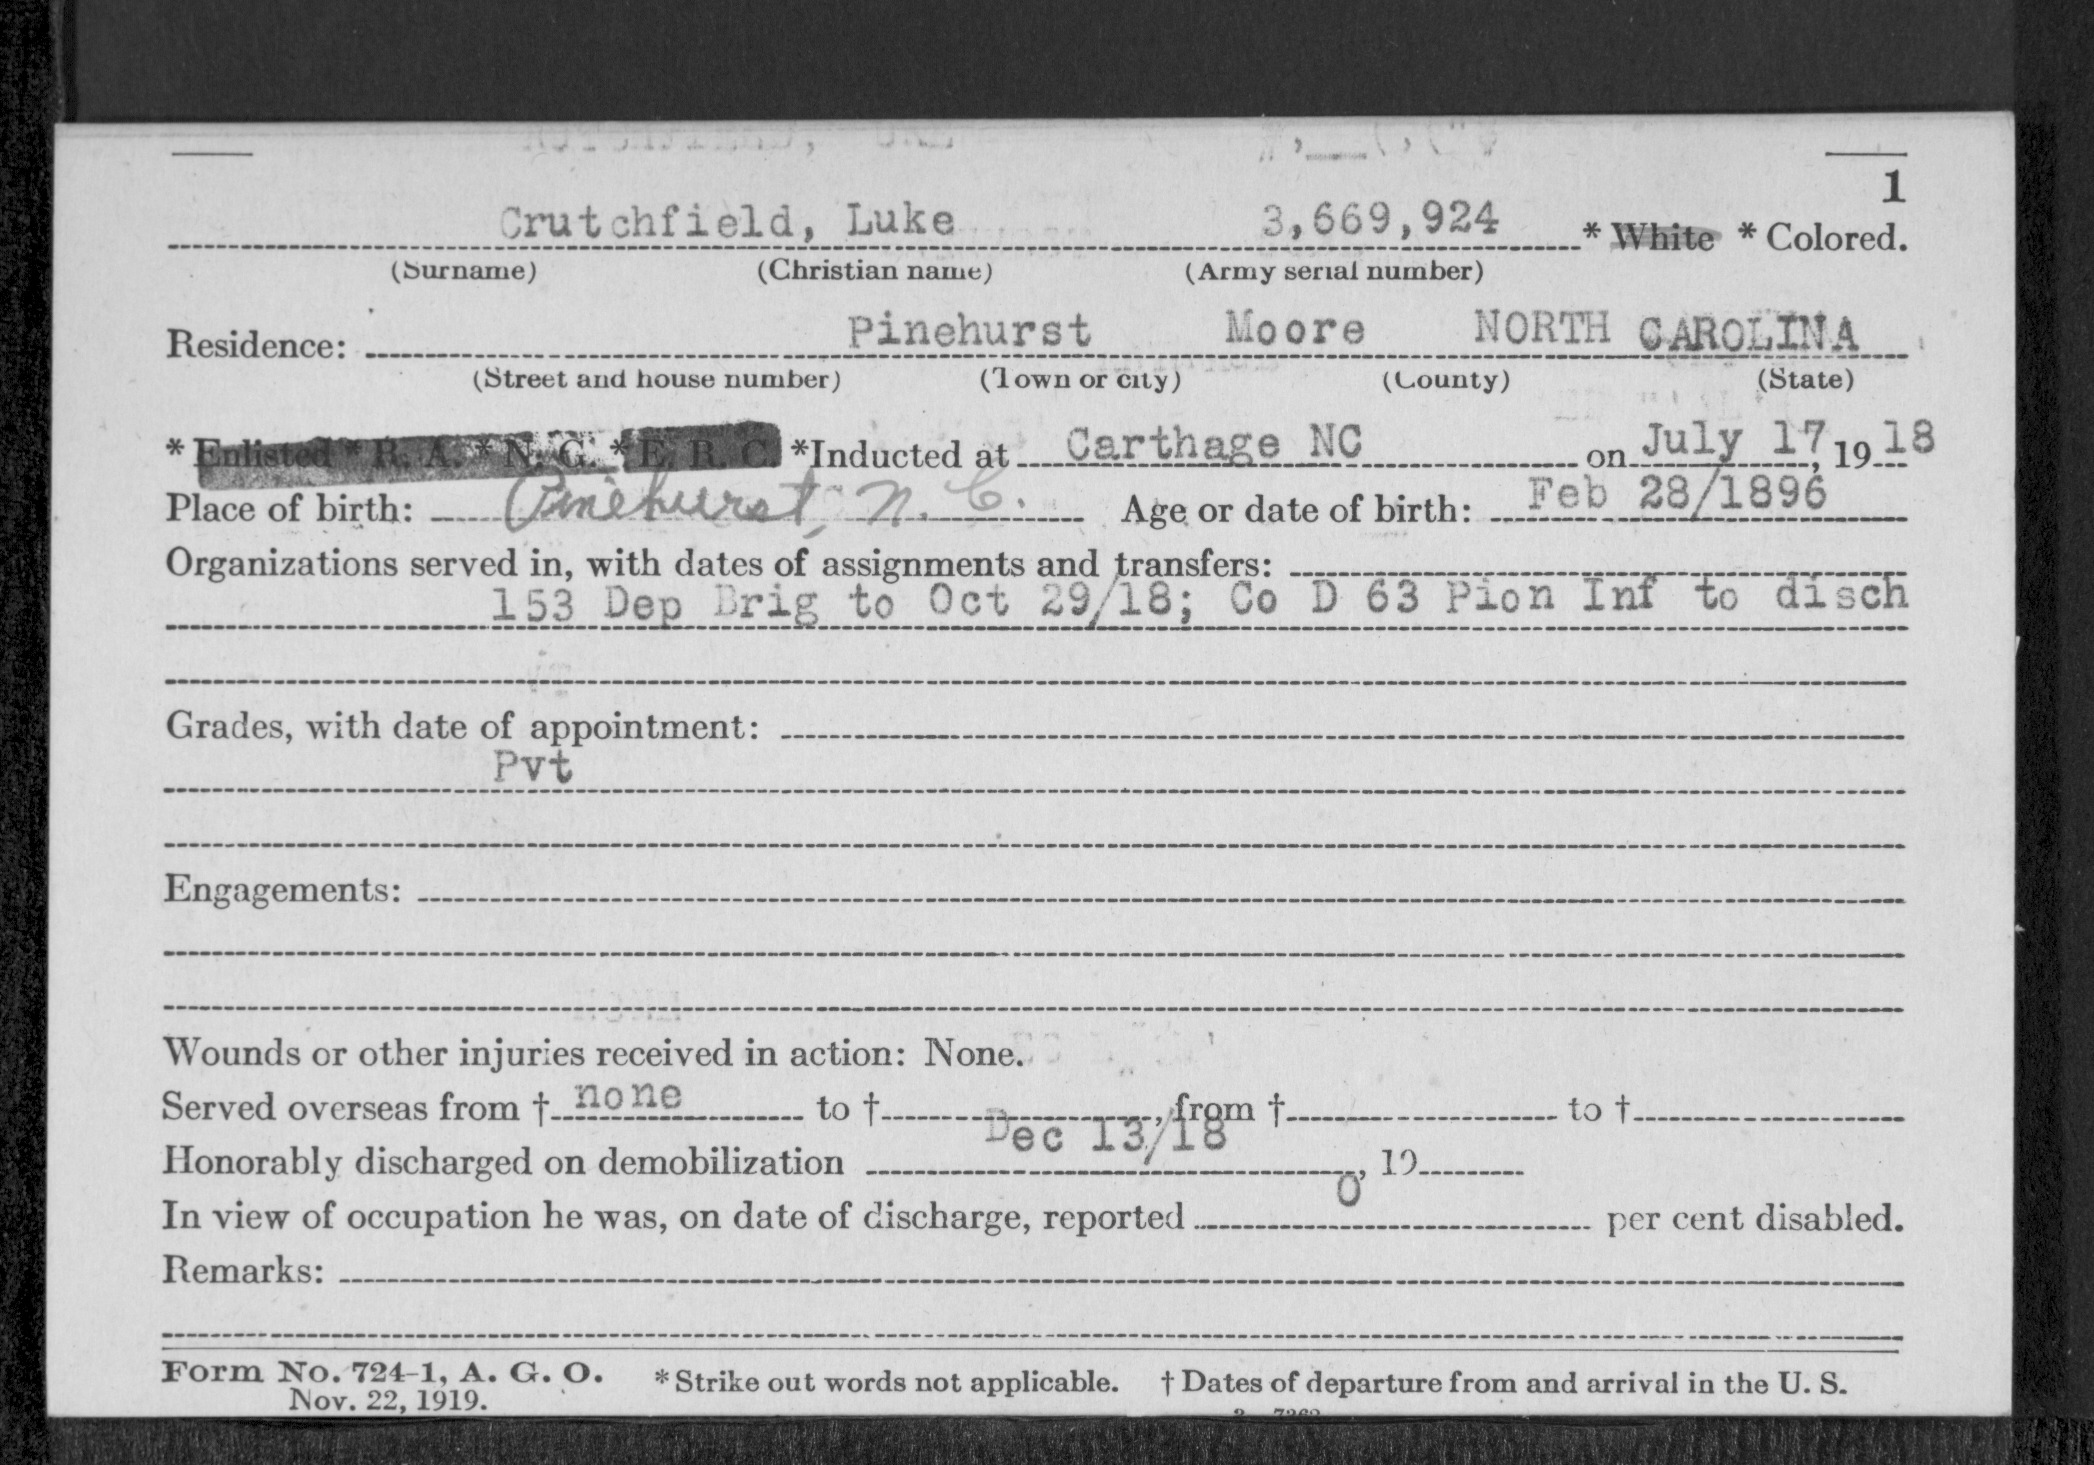 1
Crutchfield, Luke 3,669,924 * White * Colored.
(Surname) (Christian name) (Army serial number)
Residence: Pinehurst Moore NORTH CAROLINA
(Street and house number) (Town or city) (County) (State)
* Enlisted * R. A. * N. G. * E. R. C. *Inducted at Carthage NC on July 17, 1918
Place of birth: Pinehurst, N. C. Age or date of birth: Feb 28/1896
Organizations served in, with dates of assignments and transfers:
153 Dep Brig to Oct 29/18; Co D 63 Pion Inf to disch
Grades, with date of appointment:
Pvt
Engagements:
Wounds or other injuries received in action: None.
Served overseas from † none to †, from † to †
Honorably discharged on demobilization Dec 13/18, 19
In view of occupation he was, on date of discharge, reported 0 per cent disabled.
Remarks:
Form No. 724-1, A. G. O. * Strike out words not applicable. † Dates of departure from and arrival in the U. S.
Nov. 22, 1919.